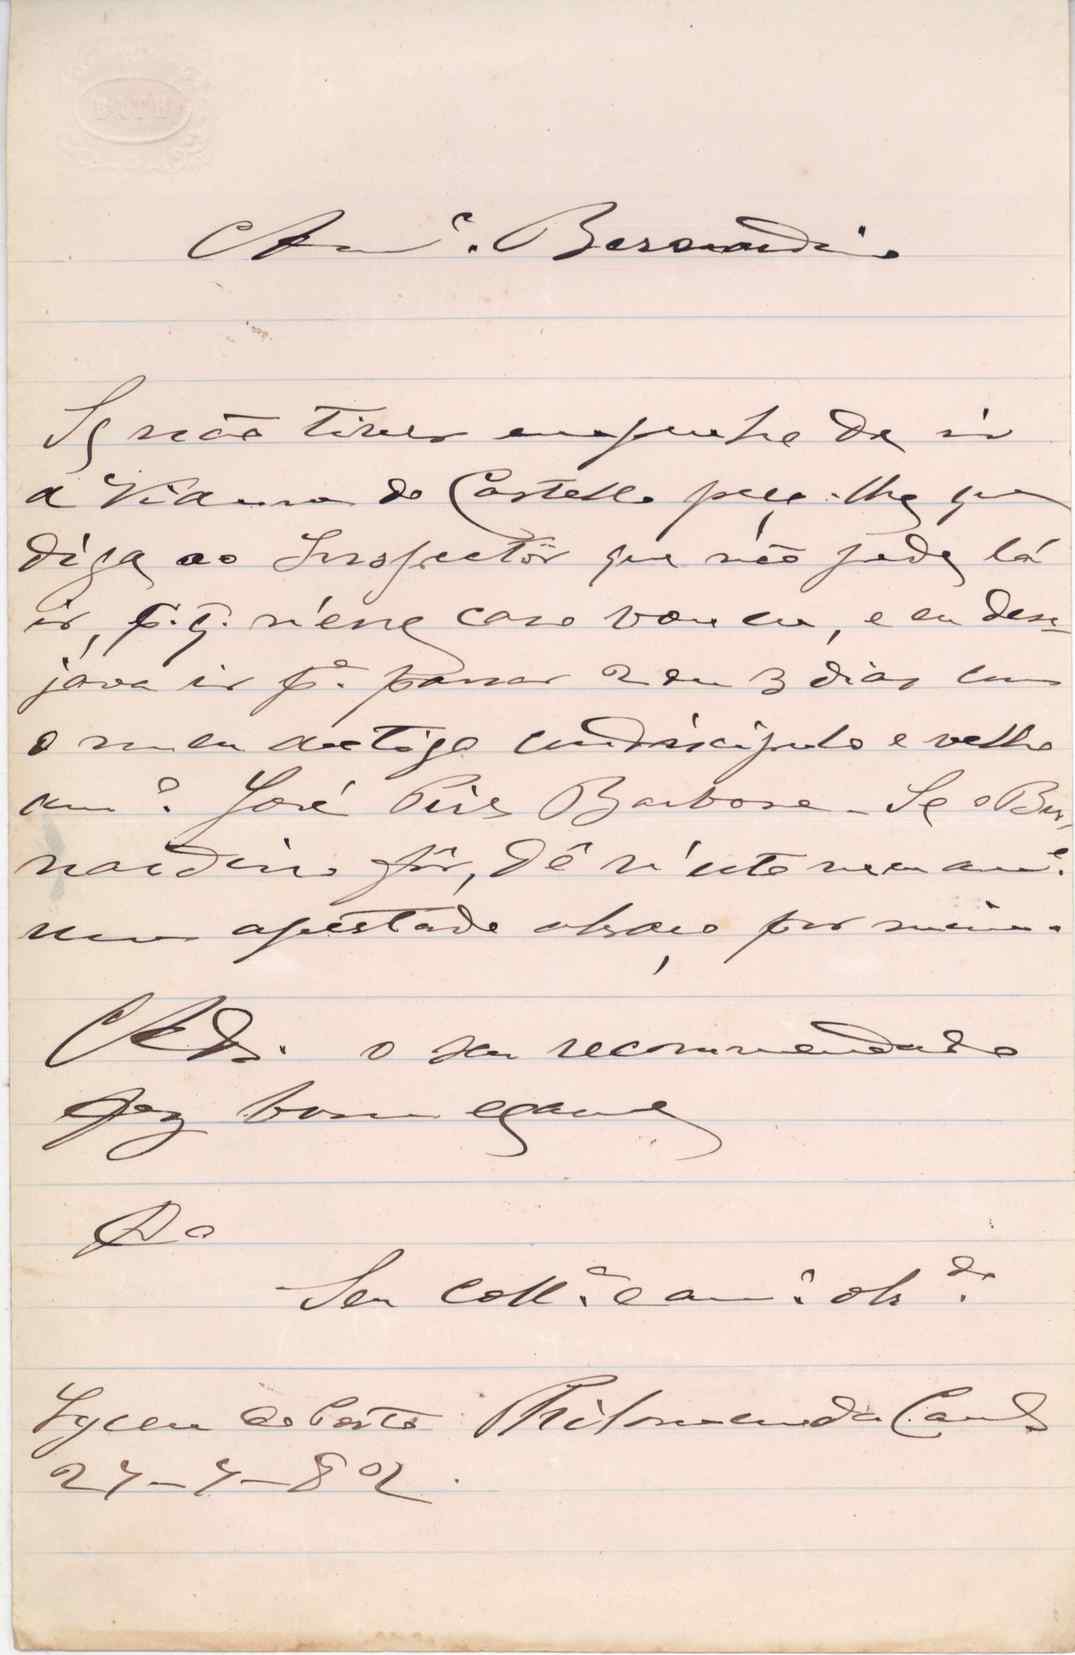 BATH
Am.º Bernardino
Se não tiver empenho de ir
a Vianna do Castello peço-lhe que
diga ao Inspector que não pode lá
ir, p. q. n'esse caso vou eu, e eu dese-
java ir p.ª passar 2 ou 3 dias com
o meu antigo condiscipulo e velho
am.º José Pires Barbosa. Se o Ber-
nardino fôr, dê n'este meu am.º
um apertado abraço por mim.
Ads. o seu recommendado
fez bom exame
Do
Seu coll.ª e am.º obr.do
Lyceu do Porto Philomeno da Camara
27-7-82.